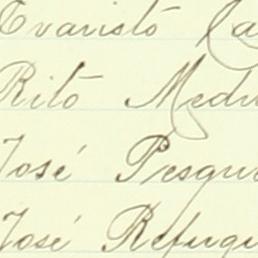 Evaristo Ca
Rito Medi
José Pesqu
José Refugi